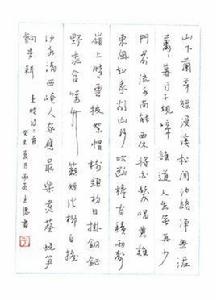 山下蘭芽短浸溪松間沙路淨無泥
蕭蕭暮雨子規啼誰道人生無再少
門前流水尚能西休將白髮唱黃雞
東風知我欲山行吹斷簷間積雨聲
嶺上晴雲披絮帽樹頭初日掛銅鉦
野桃含笑竹籬短溪柳自搖
沙水清西崦人家應最樂煮葵燒筍
餉春耕